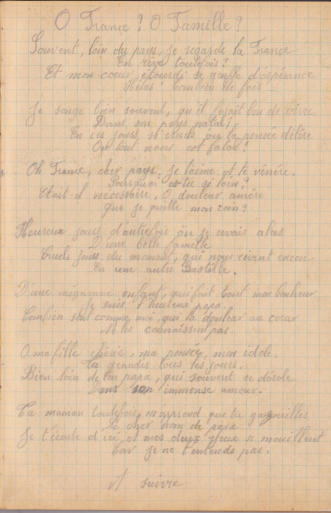 O France ? O Famille ?
Souvent, loin du pays, je regarde la France
En rêve toutefois ?
Et mon coeur, étourdi de d'espérance
Hélas ! combien de fois
Je songe bien souvent, qu'il était bon de vivre
Dans son pays natal,
En ces jours, si où la pensée délire
Où tout nous est fatal ?
Oh France, cher pays, je t'aime et te vénère.
Pourquoi es-tu si loin ?
Etait il nécessaire, O douleur amère
Que je quitte mon coin ?
Heureux jours d'autrefois où je vivais alors
D'une belle famille
Cruels jours du moment, qui nous encore
En une autre Bastille.
D'une mignonne enfant, qui fait tout mon bonheur
Je suis l'heureux papa.
Combien sont comme moi, qui la douleur au coeur
Ne les connaissent pas.
O ma fille chérie, ma poupée, mon idole.
Tu grandis tous les jours.
Bien loin de ton papa, qui souvent se désole
Dans son immense amour.
Ta maman toutefois, m'apprend que tu gazouilles
Le cher nom de papa
Je t'écoute d'ici, et mes deux yeux se mouillent
Car je ne t'entends pas.
A suivre